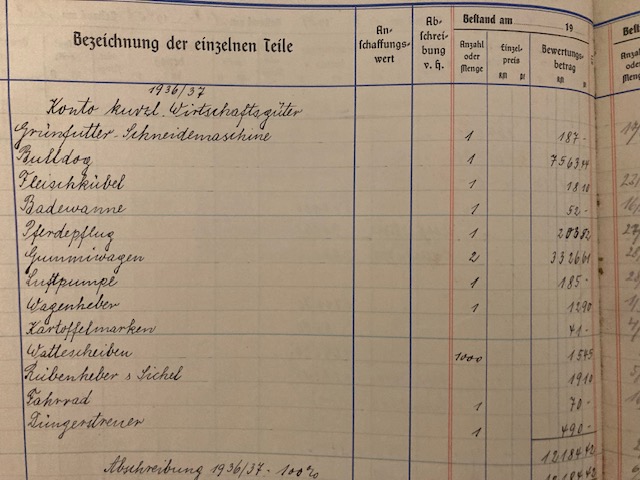 Bezeichnung der einzelnen Teile
An-
schaffungs-
wert
Ab-
schrei-
bung
v. H.
Bestand am 19
Anzahl
oder
Menge
Einzel-
preis
RM Pf
Bewertungs-
betrag
RM Pf
Best
Anzahl
oder
Menge
1936/37
Konto kurzl. Wirtschaftsgüter
Grünfutter-Schneidemaschine 1 187 -
Bulldog 1 7563 44
Fleischkübel 1 18 10
Badewanne 1 52 -
Pferdepflug 1 203 52
Gummiwagen 2 3326 61
Luftpumpe 1 185 -
Wagenheber 1 12 90
Kartoffelmarken 41 -
Wattescheiben 1000 15 45
Rübenheber s Sichel 19 10
Fahrrad 1 70 -
Düngerstreuer 1 490 -
12184 42
Abschreibung 1936/37 - 100% 12184 42